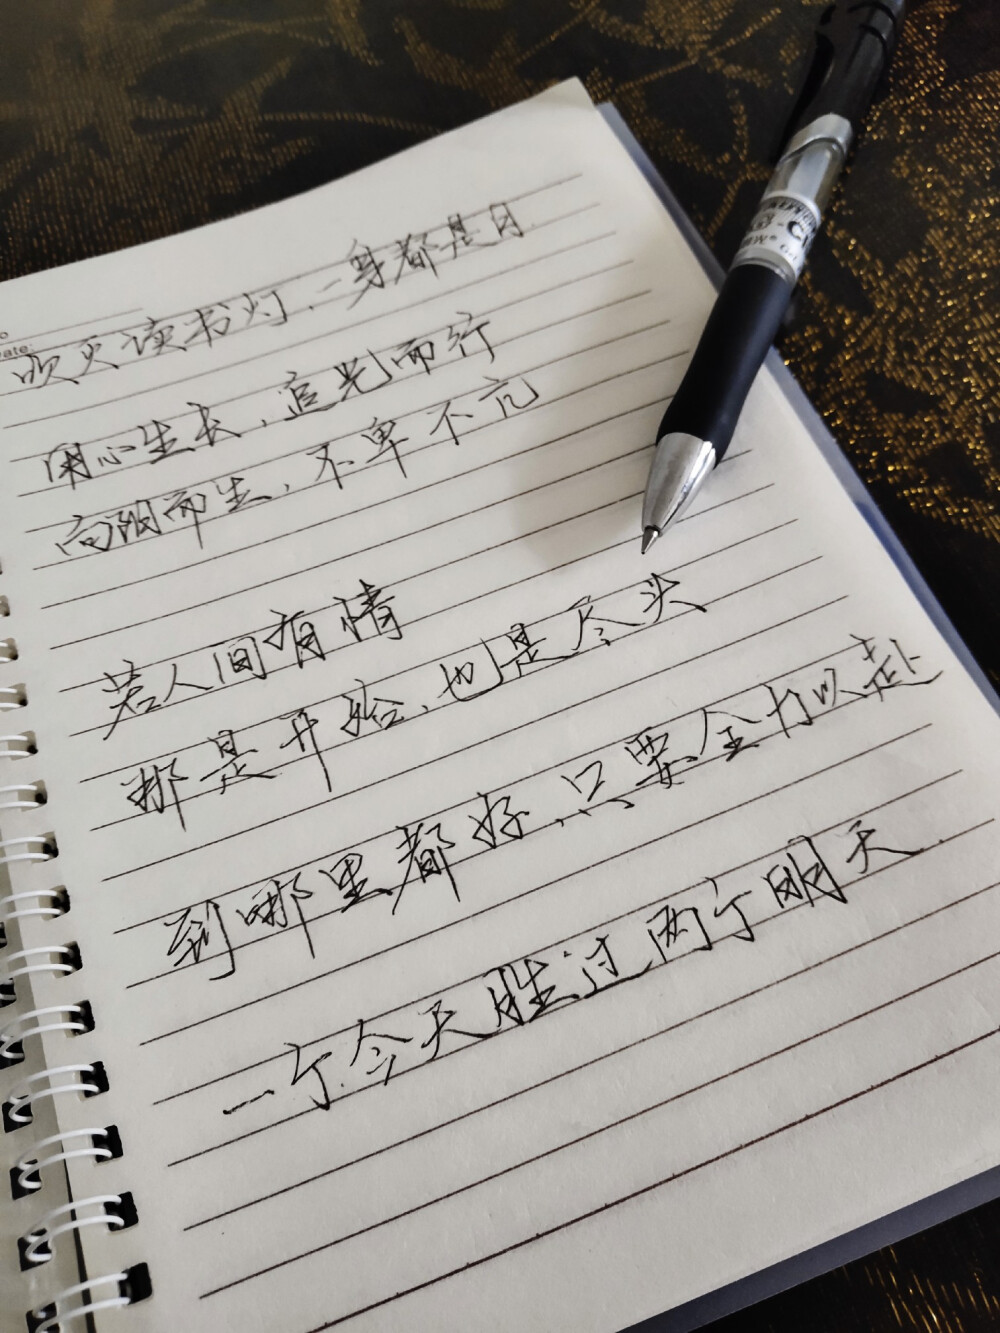 吹灭读书灯，一身都是月.
用心生长，追光而行
向阳而生，不卑不亢
若人间有情
那是开始，也是尽头
到哪里都好，只要全力以赴
一个今天胜过两个明天.